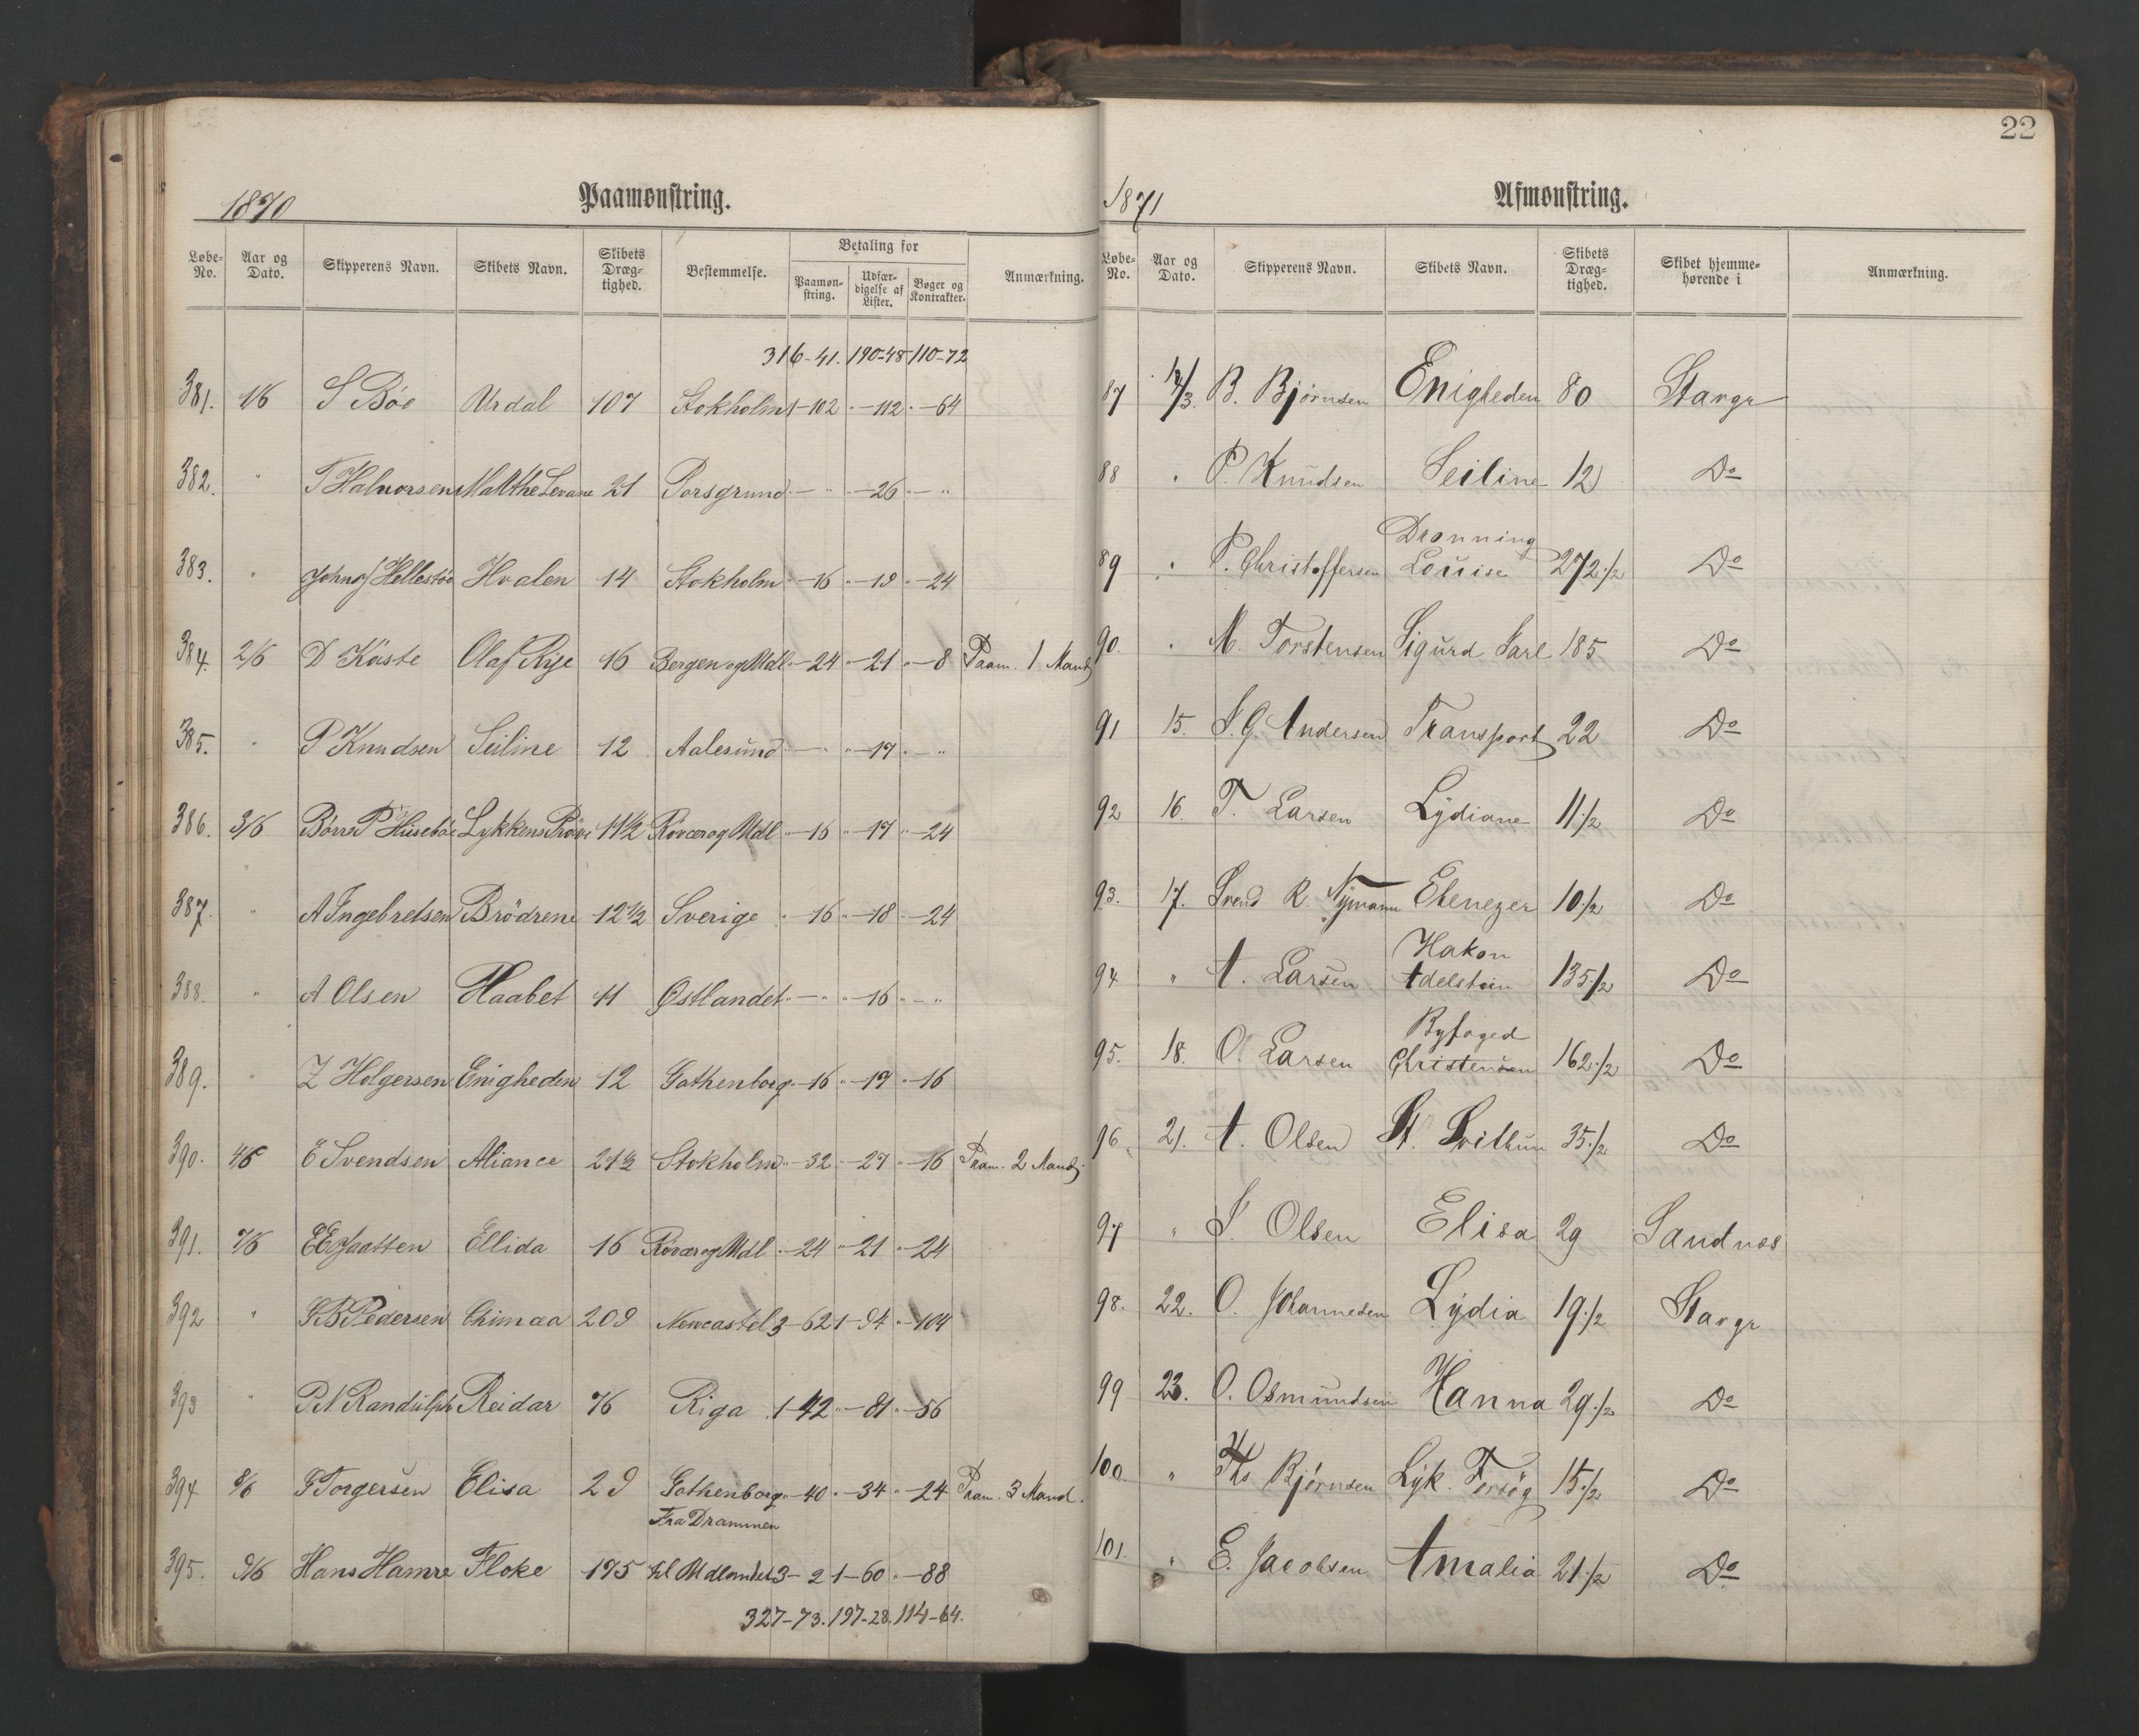 1870 Paamønstring.
Løbe-No. Aar og Dato. Skipperens Navn. Skibets Navn. Skibets Dræg-tighed. Bestemmelse. Betaling for Paamøn-string. Udfær-digelse af Lister. Bøger og Kontrakter. Anmærkning.
316-41. 190-48 110-72
381. 1/6 S Böe Urdal 107 Stokholm 1-102 "-112 "-64
382. " T Halvorsen 21 Porsgrund "-" "-26 "-"
383. " Hellestöe Hvalen 14 Stokholm "-16 "-19 "-24
384. 2/6 D Köste Olaf Rije 16 Bergen og Mdl "-24 "-21 "-8 Paam. 1 Mand
385. " P Knudsen Seiline 12 Aalesund "-" "-17 "-"
386. 3/6 Börre P Huseböe Lykkens Pröve 11 1/2 Röver og Mdl "-16 "-17 "-24
387. " A Ingebretsen Brödrene 12 1/2 Sverige "-16 "-18 "-24
388. " A Olsen Haabet 11 Østlandet "-" "-16 "-"
389. " Z Holgersen Enigheden 12 Gothenborg "-16 "-17 "-16
390. 4/6 E Svendsen Aliance 21 1/2 Stokholm "-32 "-27 "-16 Paam. 2 Mand
391. 7/6 Ellida 16 Röver og Mdl "-24 "-21 "-24
392 " Pedersen Chimaa 209 Newcastel 3-62 1-94 "-104
393 " P N Randulph Reidar 76 Riga 1-42 "-81 "-56
394 8/6 Torgersen Elisa 29 Gothenborg "-40 "-34 "-24 Paam. 3 Mand.
Fra Drammen
395. 9/6 Hans Hamre Floke 175 til Udlandet 3-2 1-60 "-88
327-73. 197-28. 114-64.
22
1871 Afmønstring.
Løbe-No. Aar og Dato. Skipperens Navn. Skibets Navn. Skibets Dræg-tighed. Skibet hjemme-hørende i Anmærkning.
87 14/3. B. Bjørnsen Enigheden 80 Stavgr
88 " P. Knudsen Seiline 12 Do
89 " P. Christoffersen Dronning Louise 272 1/2 Do
90. " M. Torstensen Sigurd Jarl 185 Do
91 15. S. G. Andersen Transport 22 Do
92 16. T. Larsen Lydiane 11 1/2 Do
93. 17. Svend R. Nymann Ebenezer 10 1/2 Do
94 " A. Larsen Hakon Adelstein 135 1/2 Do
95. 18. O. Larsen Byfoged Christensen 162 1/2 Do
96. 21. A. Olsen St. Svithun 35 1/2 Do
97 " S. Olsen Elisa 29 Sandnæs
98. 22. O. Johannesen Lydia 19 1/2 Stavgr
99 23. O. Osmundsen Hanna 29 1/2 Do
100. " Ths Bjørnsen Lyk. Forsög 15 1/2 Do
101. " E. Jacobsen Amalia 21 1/2 Do